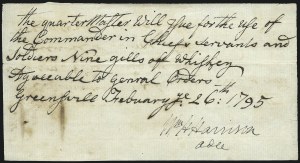 the quarter Master Will Isue for the use of
the Commander in Chief's Servants and
Soldiers Nine gills of Whiskey
Agreeable to genral Orders
Greenvill February ye. 26th 1795
Wm H Harrison
adce